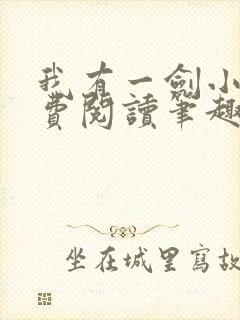 我有一劍小
費閱讀筆趣
坐在城里寫故